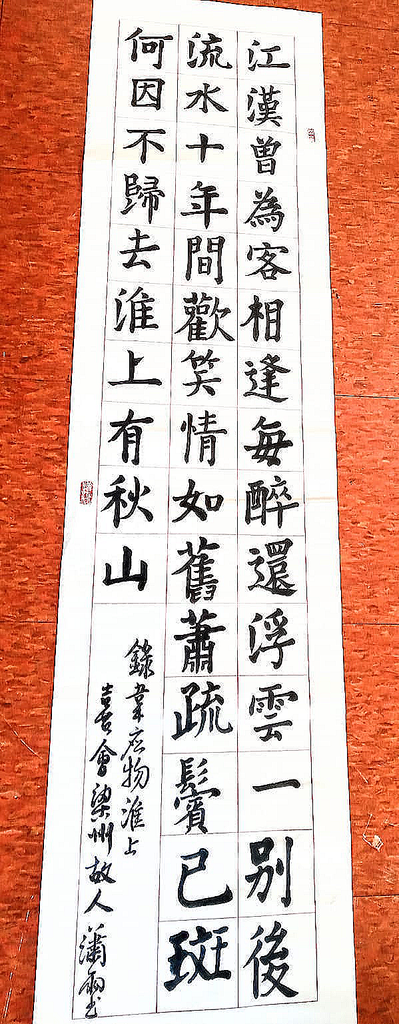 江漢曾為客相逢每醉還浮雲一別後
流水十年間歡笑情如舊蕭疏鬢已斑
何因不歸去淮上有秋山
錄韋應物淮上
喜會梁州故人